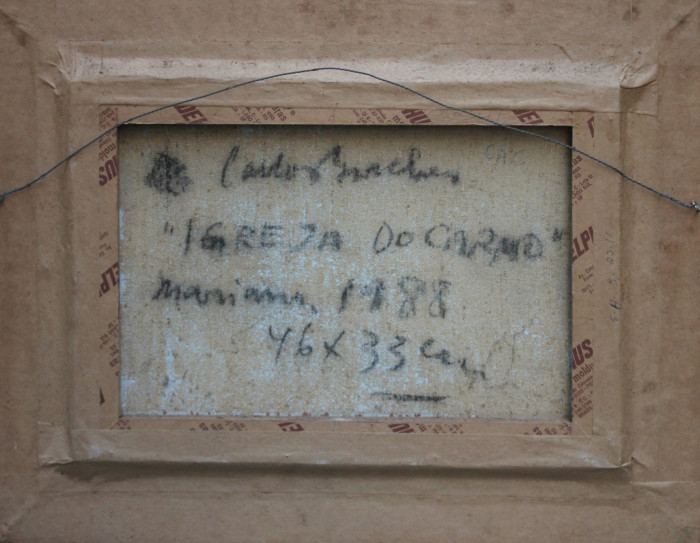 Carlos Bracher
"IGREJA DO CARMO"
Mariana, 1988
46 x 33 cm